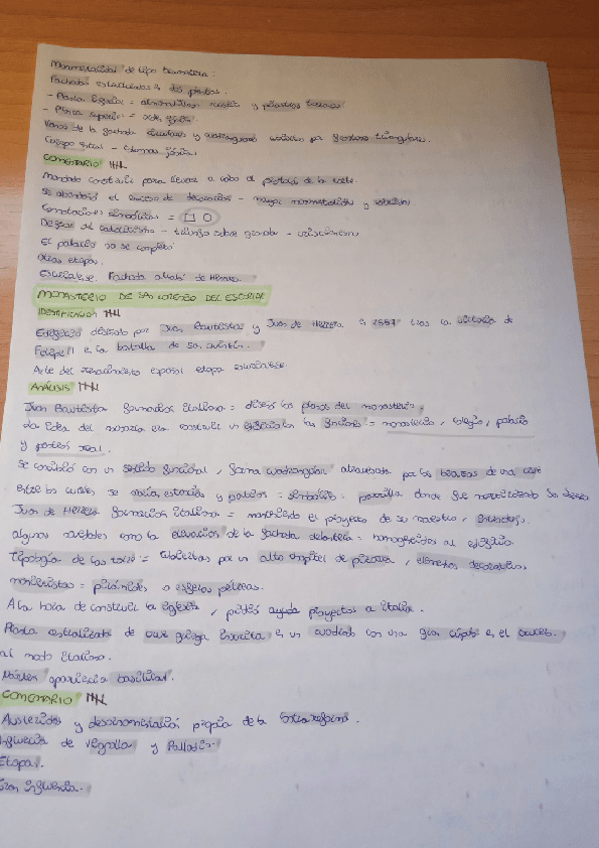 Monumentalidad de tipo Bramantesca.
Fachadas estructuradas en dos plantas.
- Planta inferior = almohadillado rústico y pilastras toscanas
- Planta superior = orden jónico
Vanos de la fachada y rectangulares por frontones triangulares.
Cuerpo central - columnas jónicas
COMENTARIO
Mandado construir para llevar a cabo el de la corte.
Se abandonó el exceso de decoración - mayor monumentalidad y
Connotaciones simbólicas = □ ○
- triunfo sobre granada -
El palacio no se completó
Otras etapas.
Escurialense. Fachada de Herrera
MONASTERIO DE SAN LORENZO DEL ESCORIAL
IDENTIFICACIÓN
Edificio diseñado por Juan Bautista y Juan de Herrera en 1557 tras la victoria de
Felipe II en la batalla de San Quintín.
Arte del renacimiento español etapa escurialense.
ANÁLISIS
Juan Bautista formación italiana = diseñó los planos del monasterio.
La idea del monarca era construir un edificio con las funciones = monasterio, colegio, palacio
y panteón real.
Se concibió con un sentido funcional, forma cuadrangular atravesada por los brazos de una cruz
entre los cuales se abrían estancias y patios = simbolismo: parrilla donde fue martirizado San Lorenzo
Juan de Herrera formación italiana = modificando el proyecto de su maestro,
algunas novedades como la elevación de la fachada delantera = homogeneidad al edificio
Tipología de las torres = cubiertas por un alto chapitel de pizarra, elementos decorativos
manieristas = pirámides o esferas pétreas.
A la hora de construir la iglesia, pidió ayuda proyectos a Italia.
Planta centralizada de cruz griega inscrita en un cuadrado con una gran cúpula en el crucero.
al modo italiano.
apariencia basilical.
COMENTARIO
Austeridad y desornamentación propia de la Contrareforma.
Influencia de Vignolla y Palladio.
Etapas.
Gran influencia.